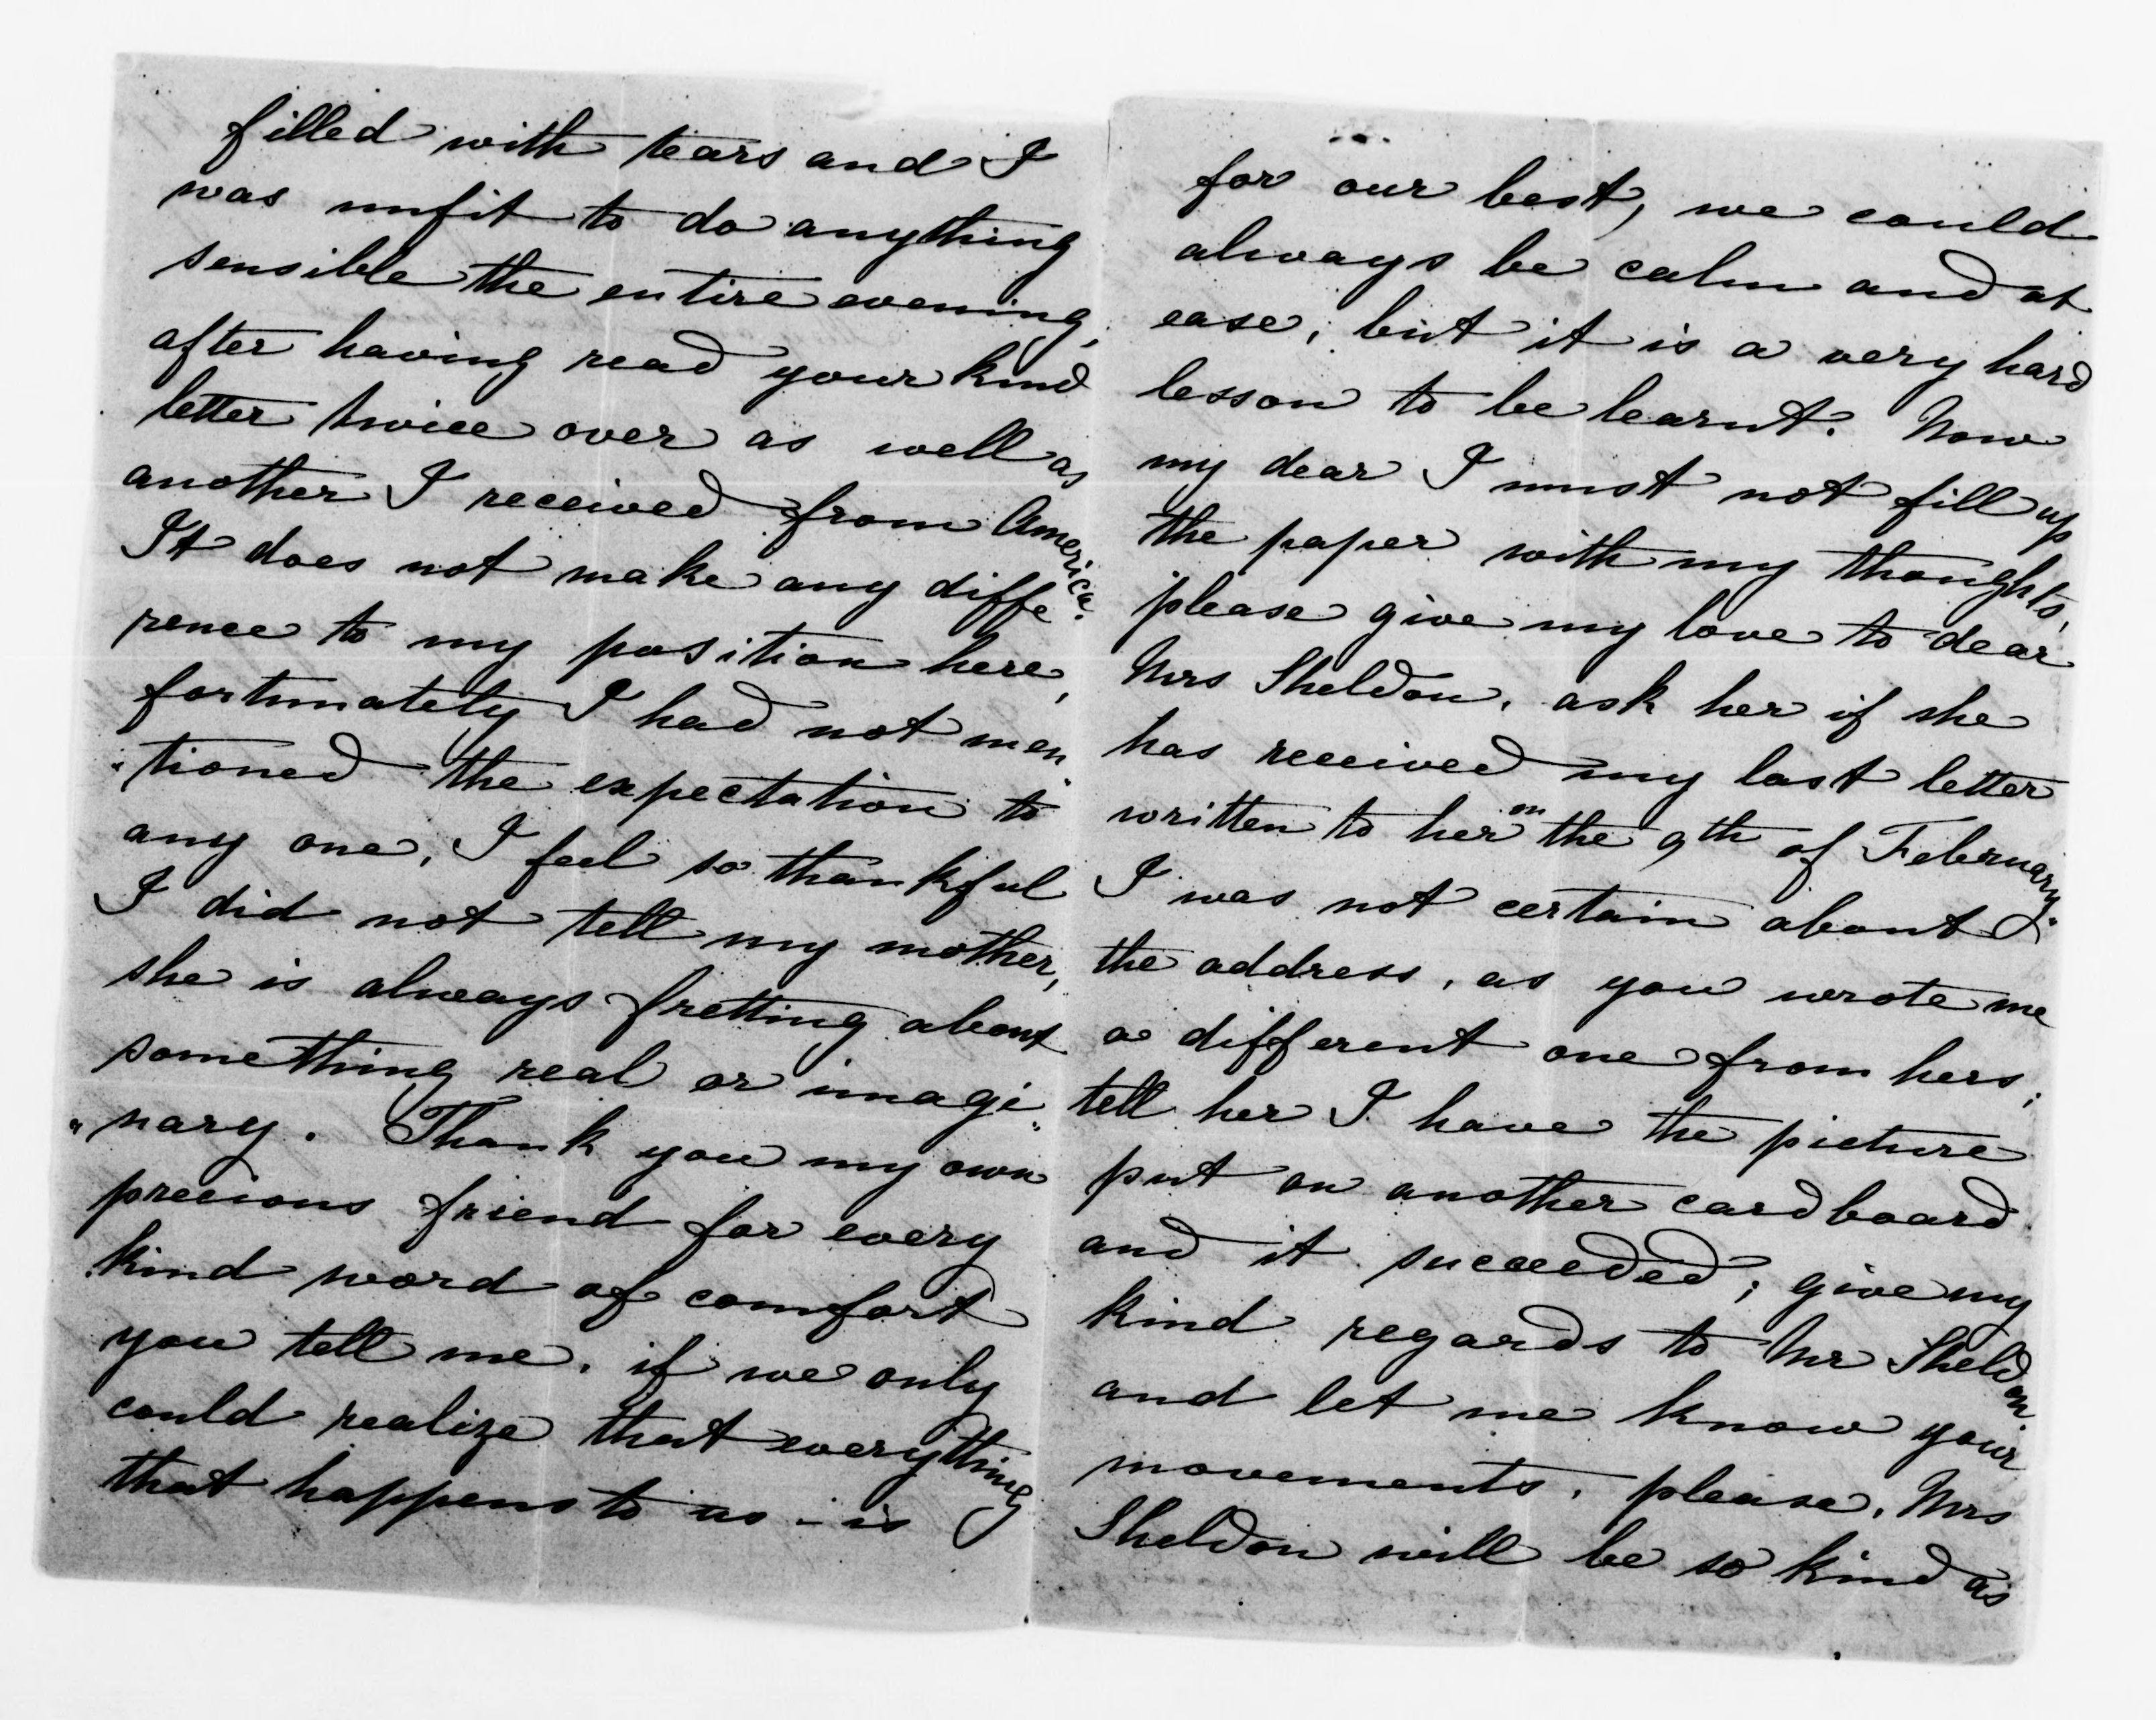 filled with tears and I
was unfit to do anything
sensible the entire evening,
after having read your kind
letter twice over as well as
another I received from America.
It does not make any diffe
rence to my position here,
fortunately I had not men"
"tioned the expectation to
any one, I feel so thankful
I did not tell my mother,
she is always fretting about
something real or imagi"
"nary. Thank you my own
precious friend for every
kind word of comfort
you tell me, if we only
could realize that everything
that happens to us - is
for our best, we could
always be calm and at
ease, but it is a very hard
lesson to be learnt. Now
my dear I must not fill up
the paper with my thoughts,
please give my love to dear
Mrs Sheldon, ask her if she
has received my last letter
written to her on the 9th of February.
I was not certain about
the address, as you wrote me
a different one from hers;
tell her I have the picture
put on another cardboard
and it succeeded; give my
kind regards to Mr Sheldon
and let me know your
movements, please, Mrs
Sheldon will be so kind as